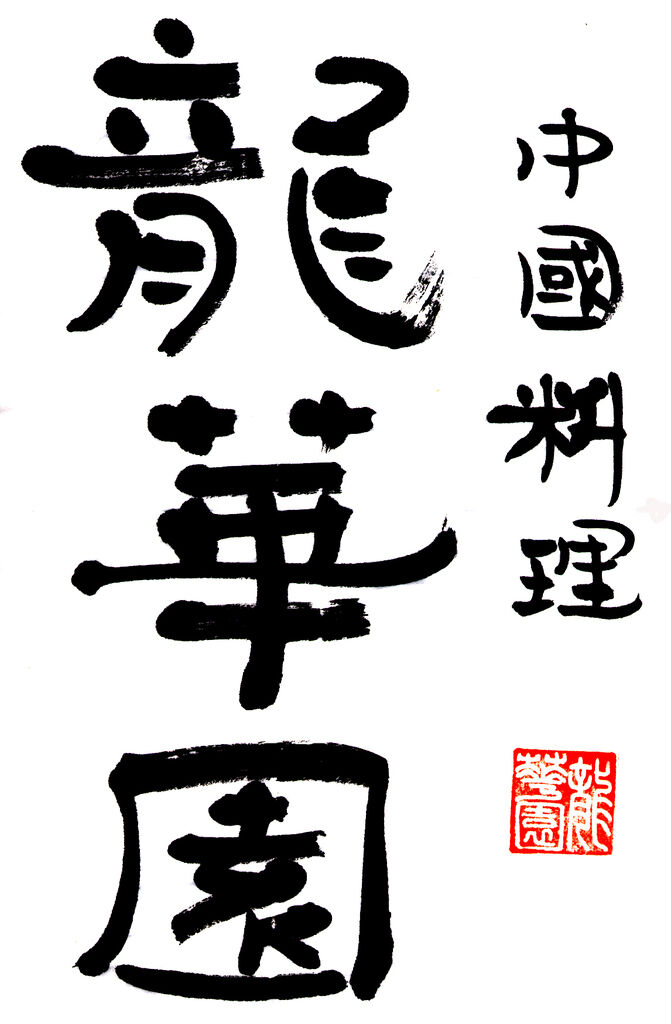 中國料理
龍華園
龍華園